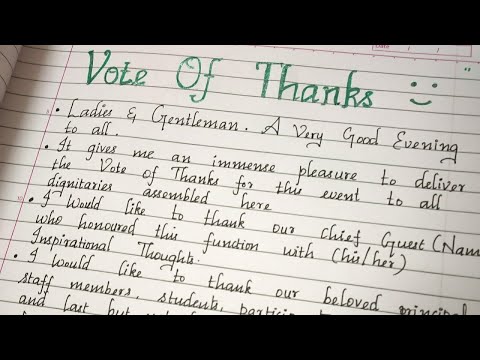 Vote Of Thanks :)
• Ladies & Gentleman. A Very Good Evening
to all.
• It gives me an immense pleasure to deliver
the Vote of Thanks for this event to all
dignitaries assembled here
• I Would like to thank our chief Guest (Nam
who honoured this function with (his/her)
Inspirational Thoughts.
• I would like to thank our beloved principal
staff members, students,
and last but